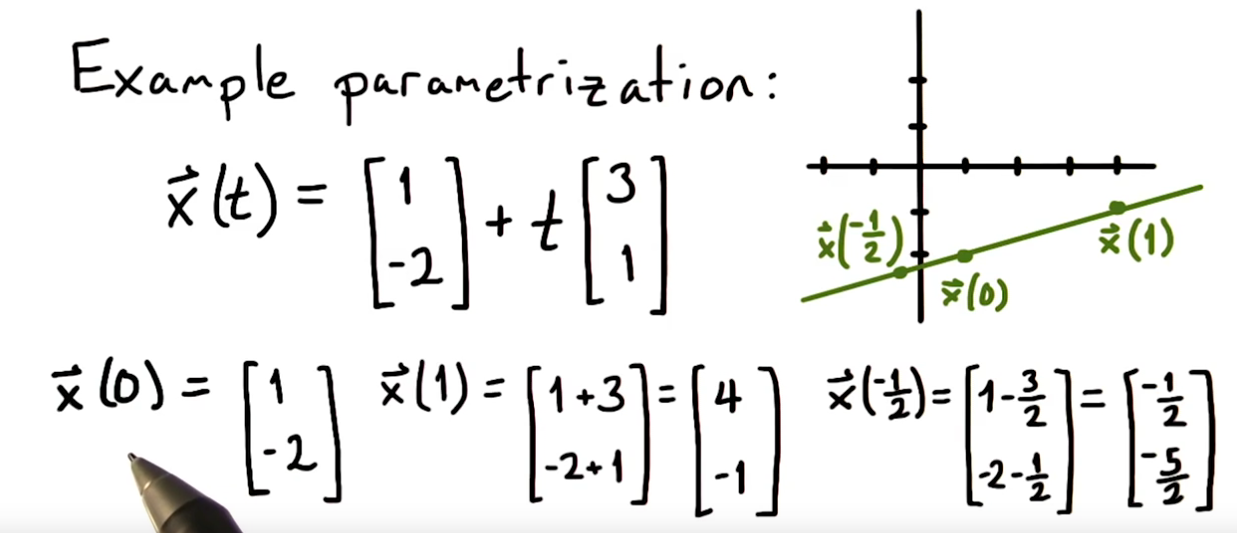 Example parametrization:
x⃗(t) = [1 -2] + t [3 1]
x⃗(-1/2)
x⃗(1)
x⃗(0)
x⃗(0) = [1 -2] x⃗(1) = [1+3 -2+1] = [4 -1] x⃗(-1/2) = [1-3/2 -2-1/2] = [-1/2 -5/2]